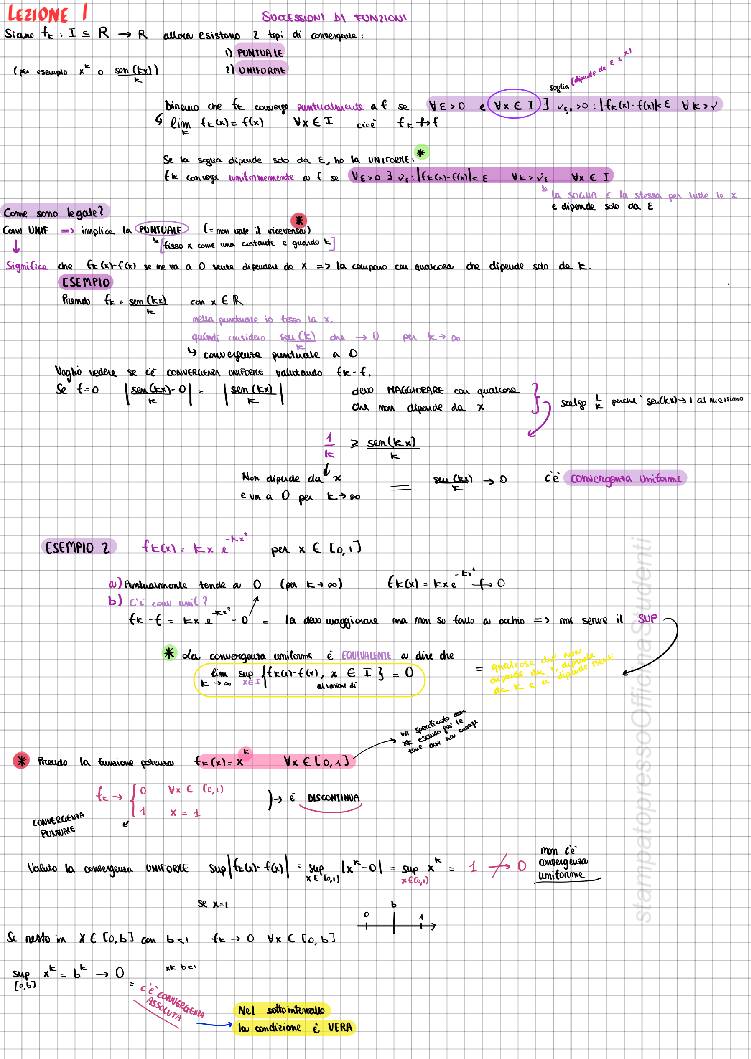 LEZIONE 1
SUCCESSIONI DI FUNZIONI
Siano fk : I ⊆ R → R allora esistono 2 tipi di convergenze:
1) PUNTUALE
(per esempio x^k o sen(kx)/k)
2) UNIFORME
soglia (dipende da ε e x)
Diciamo che fk converge puntualmente a f se ∀ε>0 e ∀x∈I ∃ νε,x>0 : |fk(x)-f(x)|<ε ∀k>ν
lim k fk(x) = f(x) ∀x∈I cioè fk → f
Se la soglia dipende solo da ε, ho la UNIFORME. *
fk converge uniformemente a f se ∀ε>0 ∃ νε : |fk(x)-f(x)|<ε ∀k>νε ∀x∈I
la soglia è la stessa per tutte le x
e dipende solo da ε
Come sono legate?
Conv UNIF => implica la PUNTUALE (= non vale il viceversa) *
[fisso x come una costante e guardo k]
Significa che fk(x)-f(x) se ne va a 0 senza dipendere da x => la comparo con qualcosa che dipende solo da k.
ESEMPIO
Prendo fk = sen(kx)/k con x∈R
nella puntuale io fisso la x.
quindi considero sen(k)/k che → 0 per k→∞
↳ convergenza puntuale a 0
Voglio vedere se c'è CONVERGENZA UNIFORME valutando fk-f.
Se f=0 |sen(kx)/k - 0| = |sen(kx)/k| devo MAGGIORARE con qualcosa
che non dipende da x
scelgo 1/k perché sen(kx)→1 al massimo
1/k ≥ sen(kx)/k
Non dipende da x
e va a 0 per k→∞
= sen(kx)/k → 0 c'è convergenza uniforme
ESEMPIO 2 fk(x) = kx e^-kx² per x∈[0,1]
a) Puntualmente tende a 0 (per k→∞) fk(x) = kx e^-kx² → 0
b) C'è conv unif?
fk-f = kx e^-kx² - 0 = la devo maggiorare ma non so farlo ad occhio => mi serve il SUP
* La convergenza uniforme è EQUIVALENTE a dire che
lim k→∞ sup x∈I {fk(x)-f(x), x∈I} = 0
al variare di
= qualcosa che non
dipende da x, dipende
da k e
* Prendo la funzione potenza fk(x) = x^k ∀x∈[0,1]
va specificato
fk → { 0 ∀x∈[0,1)
1 x=1
→ è DISCONTINUA
CONVERGENZA
PUNTUALE
Valuto la convergenza UNIFORME sup|fk(x)-f(x)| = sup x∈[0,1] |x^k-0| = sup x∈[0,1] x^k = 1 ↛ 0
non c'è
convergenza
uniforme
se x=1
0 b 1
Se resto in x∈[0,b] con b<1 fk → 0 ∀x∈[0,b]
sup [0,b] x^k = b^k → 0 xk b<1
= C'È CONVERGENZA
ASSOLUTA
Nel sottointervallo
la condizione è VERA
stampatopressoOfficinaStudenti